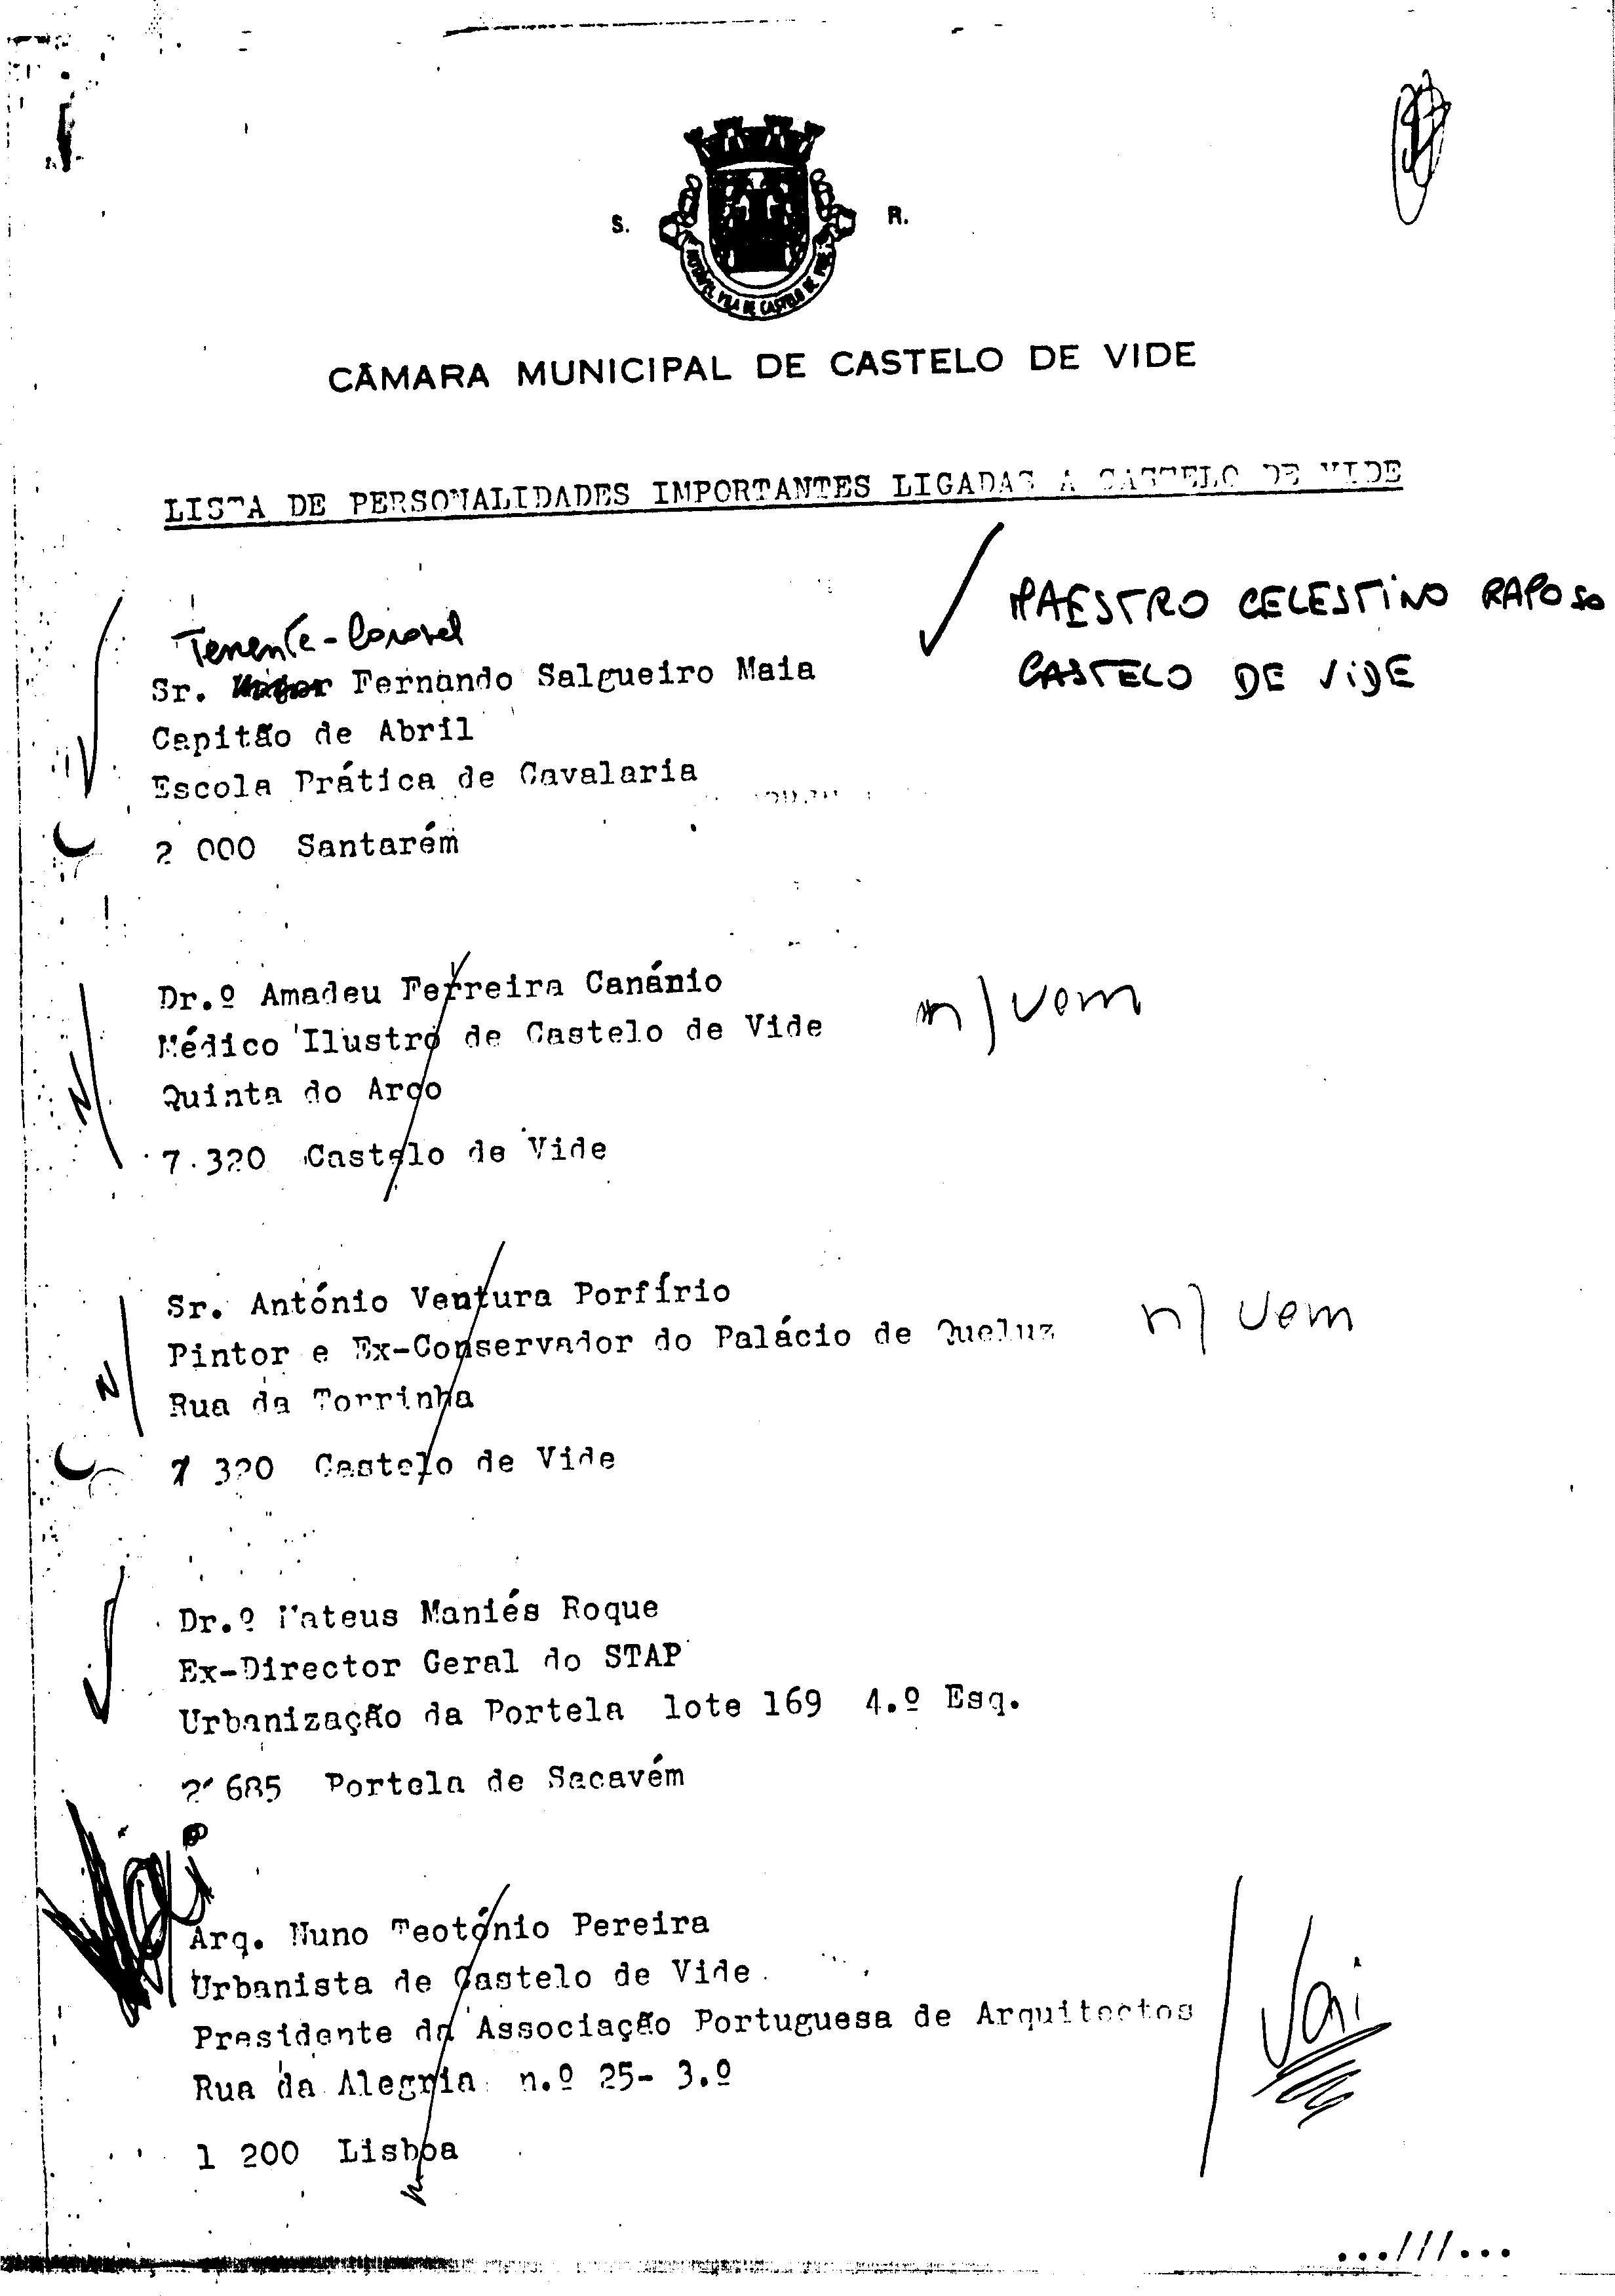 S. R.
NOTÁVEL VILA DE CASTELO DE VIDE
CÂMARA MUNICIPAL DE CASTELO DE VIDE
LISTA DE PERSONALIDADES IMPORTANTES LIGADAS A CASTELO DE VIDE
MAESTRO CELESTINO RAPOSO
CASTELO DE VIDE
Tenente-Coronel
Sr. Major Fernando Salgueiro Maia
Capitão de Abril
Escola Prática de Cavalaria
2 000 Santarém
Dr.º Amadeu Ferreira Canánio
n/vem
Médico Ilustre de Castelo de Vide
Quinta do Arco
N
7.320 Castelo de Vide
Sr. António Ventura Porfírio
n/vem
Pintor e Ex-Conservador do Palácio de Queluz
Rua da Torrinha
N
7 320 Castelo de Vide
Dr.º Mateus Maniés Roque
Ex-Director Geral do STAP
Urbanização da Portela lote 169 4.º Esq.
2 685 Portela de Sacavém
Arq. Nuno Teotónio Pereira
Urbanista de Castelo de Vide
Presidente da Associação Portuguesa de Arquitectos
Vai
Rua da Alegria n.º 25- 3.º
1 200 Lisboa
...///...